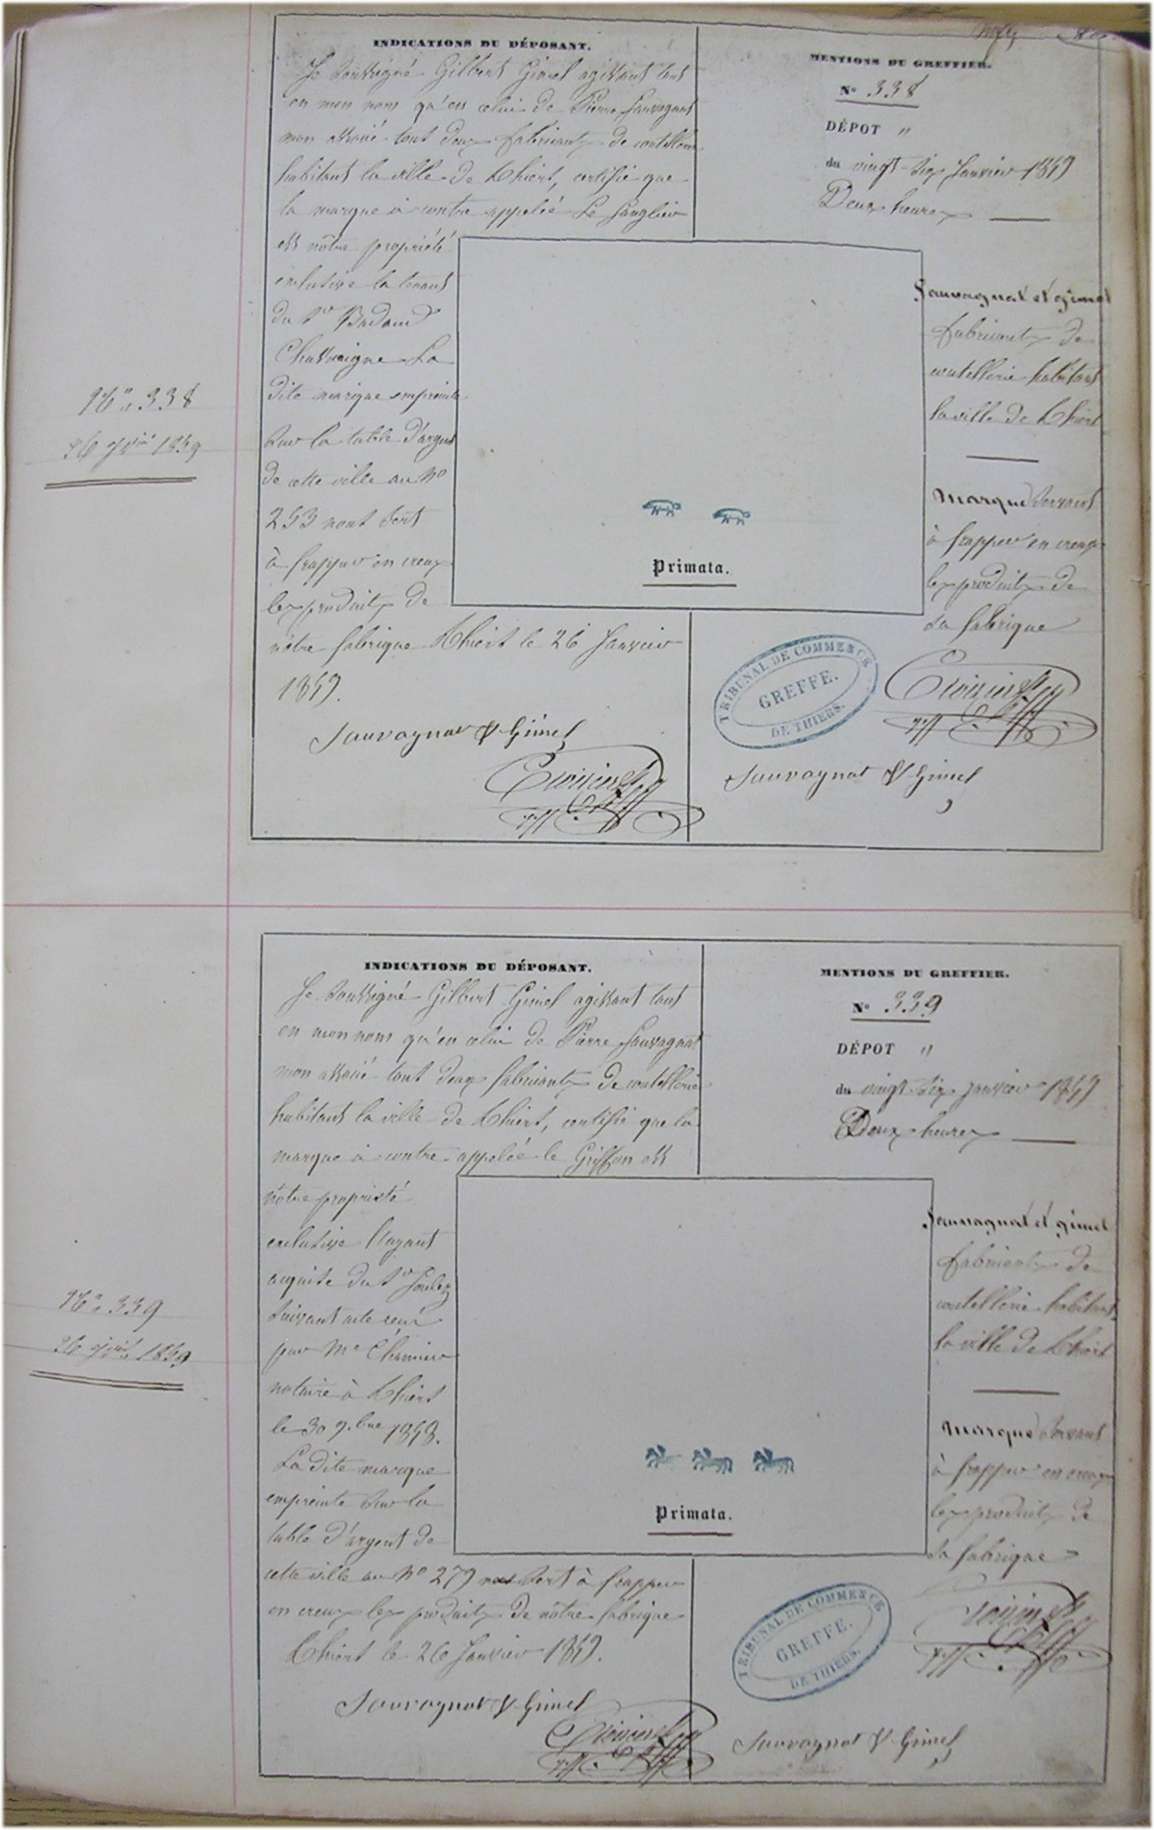 INDICATIONS DU DÉPOSANT.
Je soussigné Gilbert Gimel agissant tant
en mon nom qu'en celui de Pierre Sauvagnat
mon associé tout deux fabricants de coutellerie
habitant la ville de Thiers, certifie que
la marque ci contre appelée Le Sanglier
est nôtre propriété
exclusive la tenant
du Sr Badaud
Chassaigne La
dite marque empreinte
sur la table d'argent
de cette ville au No
253 nous sert
à frapper en creux
les produits de
nôtre fabrique Thiers le 26 Janvier
1859.
Sauvagnat & Gimel
MENTIONS DU GREFFIER.
No 338
DÉPOT "
du vingt-six Janvier 1859
Deux heures
Sauvagnat et gimel
fabricants de
coutellerie habitant
la ville de Thiers
Marque servant
à frapper en creux
les produits de
sa fabrique
Primata.
TRIBUNAL DE COMMERCE
GREFFE.
DE THIERS.
Sauvagnat & Gimel
No 338
26 1859
INDICATIONS DU DÉPOSANT.
Je soussigné Gilbert Gimel agissant tant
en mon nom qu'en celui de Pierre Sauvagnat
mon associé tout deux fabricants de coutellerie
habitant la ville de Thiers, certifie que la
marque ci contre appelée le Griffon est
nôtre propriété
exclusive l'ayant
acquise du Sr
suivant acte reçu
par Me
notaire à Thiers
le 30 9.bre 1858.
La dite marque
empreinte sur la
table d'argent de
cette ville au No 279 nous sert à frapper
en creux les produits de nôtre fabrique
Thiers le 26 Janvier 1859.
Sauvagnat & Gimel
MENTIONS DU GREFFIER.
No 339
DÉPOT "
du vingt-six janvier 1859
Deux heures
Sauvagnat et gimel
fabricants de
coutellerie habitant
la ville de Thiers
Marque servant
à frapper en creux
les produits de
sa fabrique
Primata.
TRIBUNAL DE COMMERCE
GREFFE.
DE THIERS.
Sauvagnat & Gimel
No 339
26 1859